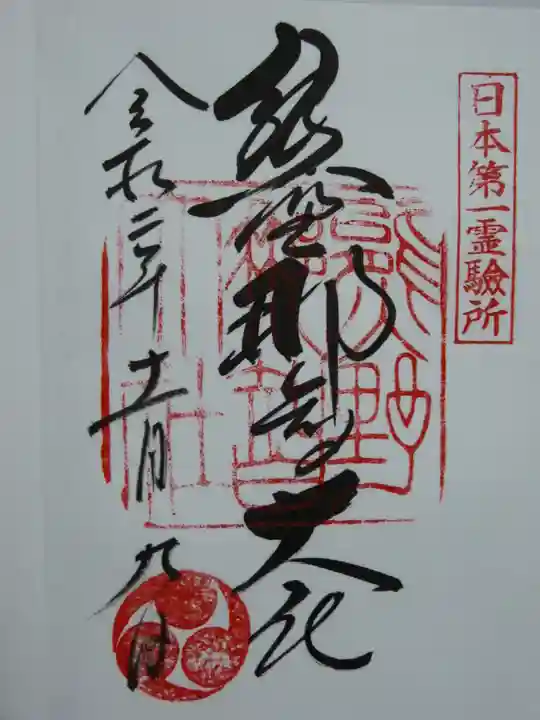 日本第一霊驗所
熊野那智大社
令和二年十一月九日